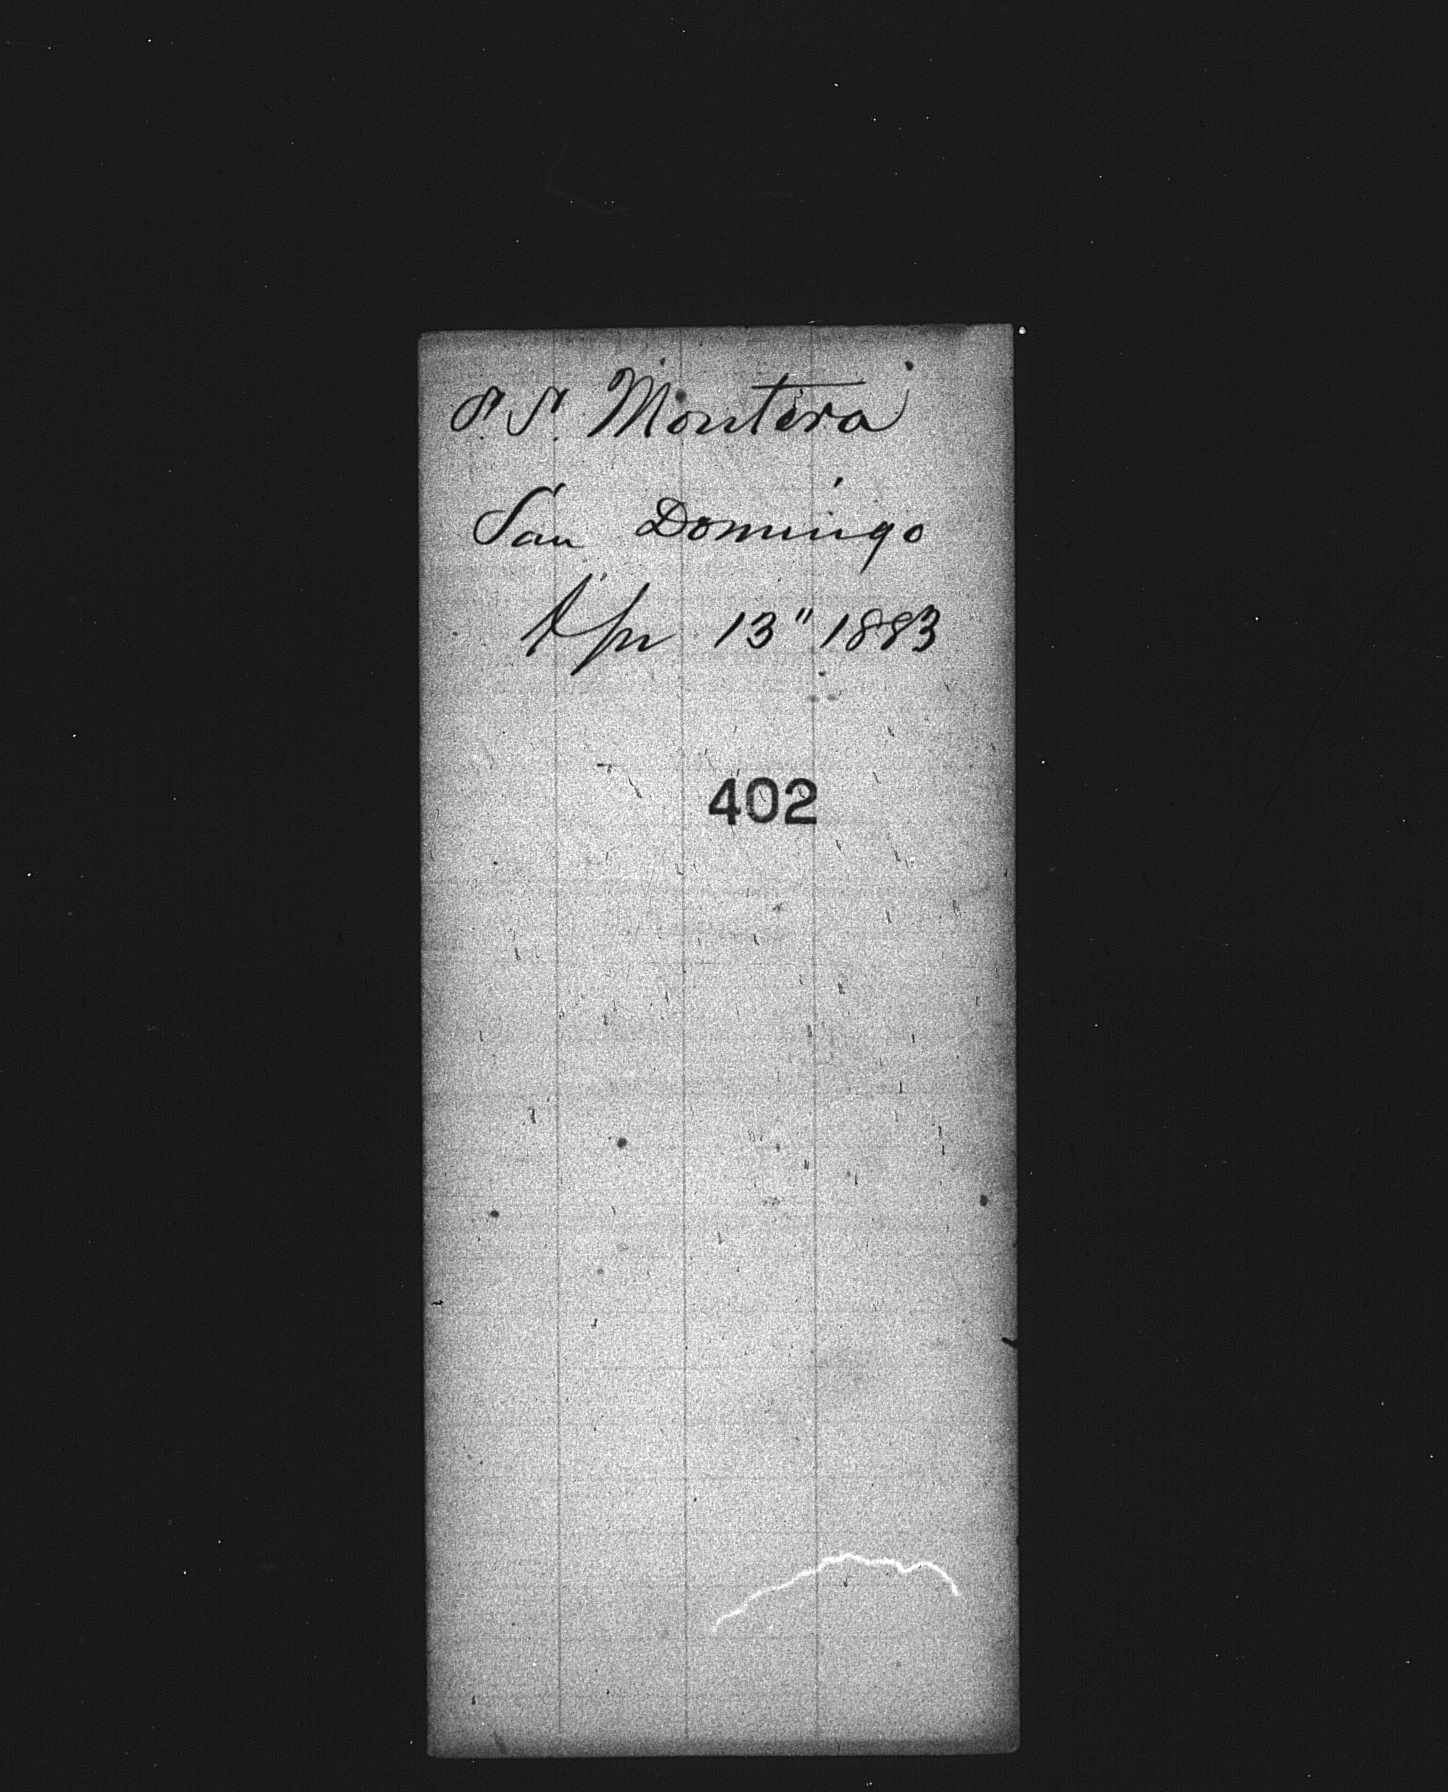 S. S. Montera
San Domingo
Apr 13" 1883
402